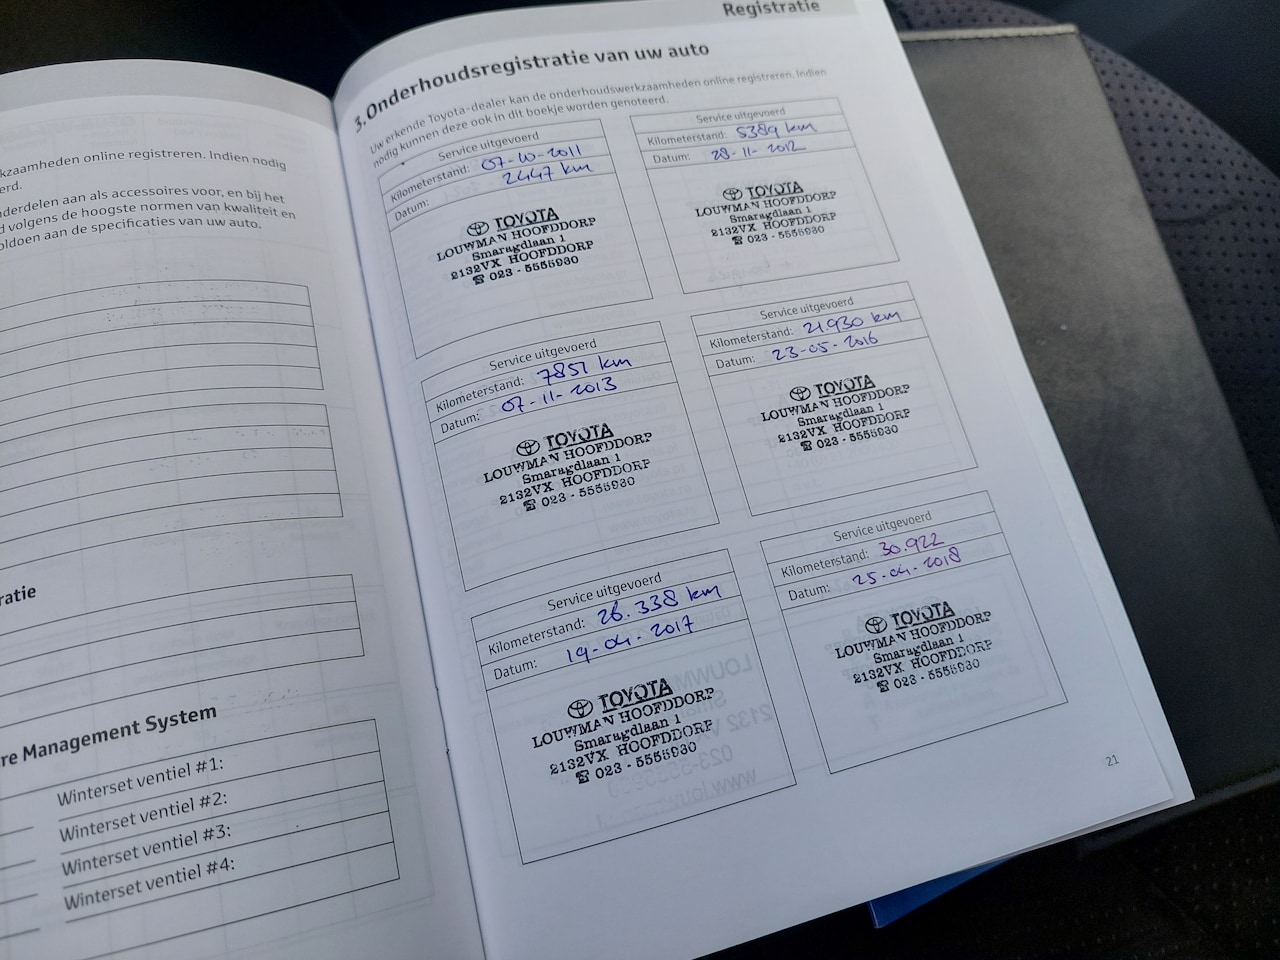 kzaamheden online registreren. Indien nodig
erd.
derdelen aan als accessoires voor, en bij het
d volgens de hoogste normen van kwaliteit en
oldoen aan de specificaties van uw auto.
ratie
re Management System
Winterset ventiel #1:
Winterset ventiel #2:
Winterset ventiel #3:
Winterset ventiel #4:
Registratie
3. Onderhoudsregistratie van uw auto
Uw erkende Toyota-dealer kan de onderhoudswerkzaamheden online registreren. Indien
nodig kunnen deze ook in dit boekje worden genoteerd.
Service uitgevoerd
Kilometerstand: 07-10-2011
Datum: 2447 km
TOYOTA
LOUWMAN HOOFDDORP
Smaragdlaan 1
2132VX HOOFDDORP
☎ 023 - 5555930
Service uitgevoerd
Kilometerstand: 5389 km
Datum: 28-11-2012
TOYOTA
LOUWMAN HOOFDDORP
Smaragdlaan 1
2132VX HOOFDDORP
☎ 023 - 5555930
Service uitgevoerd
Kilometerstand: 7851 km
Datum: 07-11-2013
TOYOTA
LOUWMAN HOOFDDORP
Smaragdlaan 1
2132VX HOOFDDORP
☎ 023 - 5555930
Service uitgevoerd
Kilometerstand: 21.930 km
Datum: 23-05-2016
TOYOTA
LOUWMAN HOOFDDORP
Smaragdlaan 1
2132VX HOOFDDORP
☎ 023 - 5555930
Service uitgevoerd
Kilometerstand: 26.338 km
Datum: 19-04-2017
TOYOTA
LOUWMAN HOOFDDORP
Smaragdlaan 1
2132VX HOOFDDORP
☎ 023 - 5555930
Service uitgevoerd
Kilometerstand: 30.922
Datum: 25-04-2018
TOYOTA
LOUWMAN HOOFDDORP
Smaragdlaan 1
2132VX HOOFDDORP
☎ 023 - 5555930
21